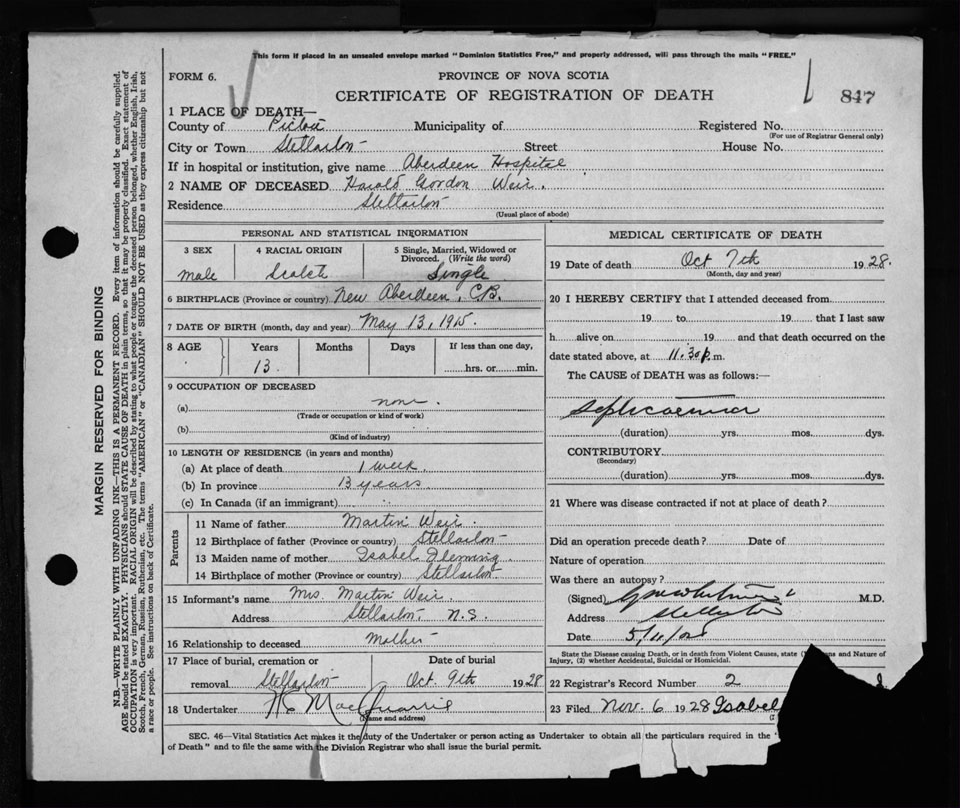 This form if placed in an unsealed envelope marked "Dominion Statistics Free," and properly addressed, will pass through the mails "FREE."
FORM 6.
PROVINCE OF NOVA SCOTIA
CERTIFICATE OF REGISTRATION OF DEATH
847
1 PLACE OF DEATH—
County of Pictou Municipality of Registered No.
(For use of Registrar General only)
City or Town Stellarton Street House No.
If in hospital or institution, give name Aberdeen Hospital
2 NAME OF DECEASED Harold Gordon Weir.
Residence Stellarton
(Usual place of abode)
PERSONAL AND STATISTICAL INFORMATION
3 SEX 4 RACIAL ORIGIN 5 Single, Married, Widowed or Divorced. (Write the word)
male Scotch Single
6 BIRTHPLACE (Province or country) New Aberdeen, C.B.
7 DATE OF BIRTH (month, day and year) May 13, 1915
8 AGE Years Months Days If less than one day,
13. hrs. or min.
9 OCCUPATION OF DECEASED
(a) none.
(Trade or occupation or kind of work)
(b)
(Kind of industry)
10 LENGTH OF RESIDENCE (in years and months)
(a) At place of death 1 week.
(b) In province 13 years
(c) In Canada (if an immigrant)
Parents
11 Name of father Martin Weir.
12 Birthplace of father (Province or country) Stellarton
13 Maiden name of mother Isabel Fleming
14 Birthplace of mother (Province or country) Stellarton
15 Informant's name Mrs. Martin Weir.
Address Stellarton, N.S.
16 Relationship to deceased Mother
17 Place of burial, cremation or Date of burial
removal Stellarton Oct. 9th 1928
18 Undertaker MacQuarrie
(Name and address)
MEDICAL CERTIFICATE OF DEATH
19 Date of death Oct 7th 1928.
(Month, day and year)
20 I HEREBY CERTIFY that I attended deceased from
19 to 19 that I last saw
h alive on 19 and that death occurred on the
date stated above, at 11.30 p.m.
The CAUSE of DEATH was as follows:—
Septicaemia
(duration) yrs. mos. dys.
CONTRIBUTORY
(Secondary)
(duration) yrs. mos. dys.
21 Where was disease contracted if not at place of death?
Did an operation precede death? Date of
Nature of operation
Was there an autopsy?
(Signed) M.D.
Address
Date
State the Disease causing Death, or in death from Violent Causes, state (1) Means and Nature of
Injury, (2) whether Accidental, Suicidal or Homicidal.
22 Registrar's Record Number 2
23 Filed Nov. 6 1928 Isabel
SEC. 46—Vital Statistics Act makes it the duty of the Undertaker or person acting as Undertaker to obtain all the particulars required in the
of Death" and to file the same with the Division Registrar who shall issue the burial permit.
MARGIN RESERVED FOR BINDING
N.B.—WRITE PLAINLY WITH UNFADING INK—THIS IS A PERMANENT RECORD. Every item of information should be carefully supplied.
AGE should be stated EXACTLY. PHYSICIANS should STATE CAUSE OF DEATH in plain terms, so that it may be properly classified. Exact statement of
OCCUPATION is very important. RACIAL ORIGIN will be described by stating to what people or tongue the deceased person belonged, whether English, Irish,
Scotch, French, German, Russian, Ruthenian, etc. The terms "AMERICAN" or "CANADIAN" SHOULD NOT BE USED as they express citizenship but not
a race or people. See instructions on back of Certificate.